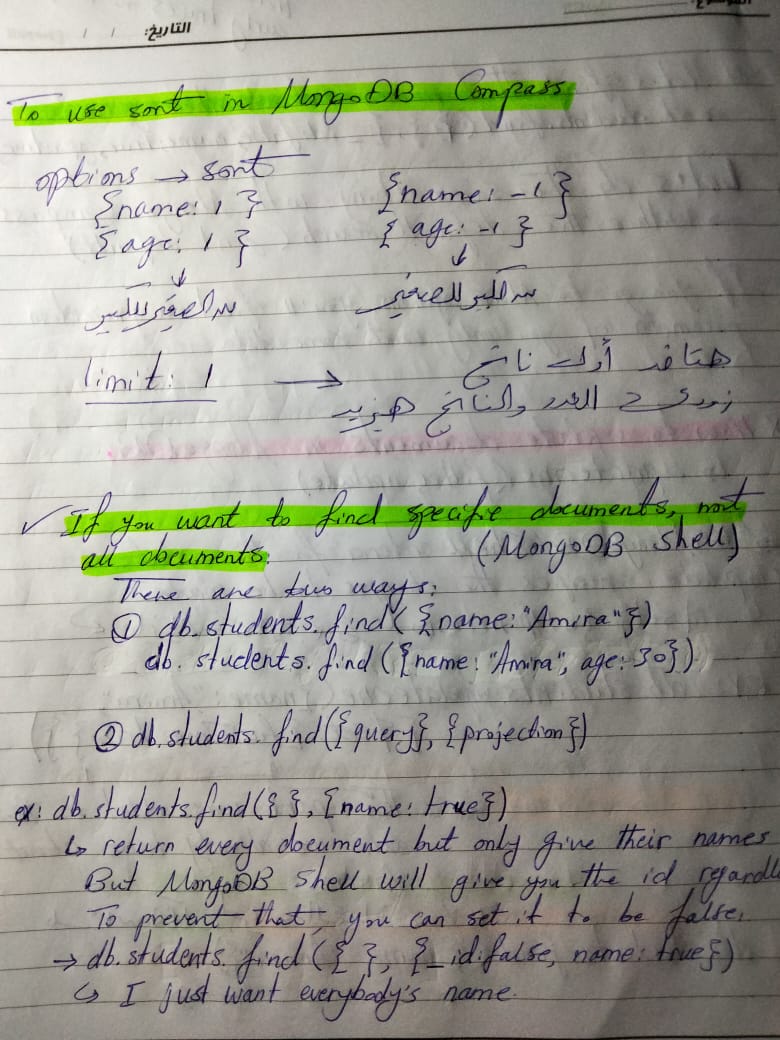 الموضوع:
التاريخ: / /
To use sort in MongoDB Compass
options → sort
{name: 1 } {name: -1 }
{ age: 1 } { age: -1 }
↓ ↓
من الصغير للكبير من الكبير للصغير
limit: 1 → هتاخد أول ناتج
زودي العدد والناتج هيزيد
✓ If you want to find specific documents, not
all documents. (MongoDB Shell)
There are two ways:
① db.students.find( {name: "Amira"})
db.students.find({name: "Amina", age: 30})
② db.students.find({query}, {projection})
ex: db.students.find({ }, {name: true})
↳ return every document but only give their names
But MongoDB Shell will give you the id regardl
To prevent that, you can set it to be false,
→ db.students.find ({ }, {_id:false, name: true})
↳ I just want everybody's name.